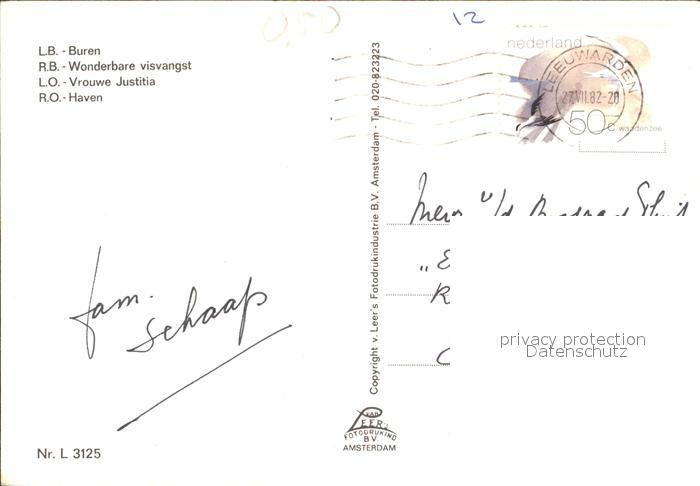 0,50
12
L.B. - Buren
R.B. - Wonderbare visvangst
L.O. - Vrouwe Justitia
R.O. - Haven
nederland
LEEUWARDEN
27.VII.82-20
50c
waddenzee
Copyright v. Leer's Fotodrukindustrie B.V. Amsterdam - Tel. 020-823223
fam.
Schaap
privacy protection
Datenschutz
VAN
LEER'S
FOTODRUKIND
B.V.
AMSTERDAM
Nr. L 3125